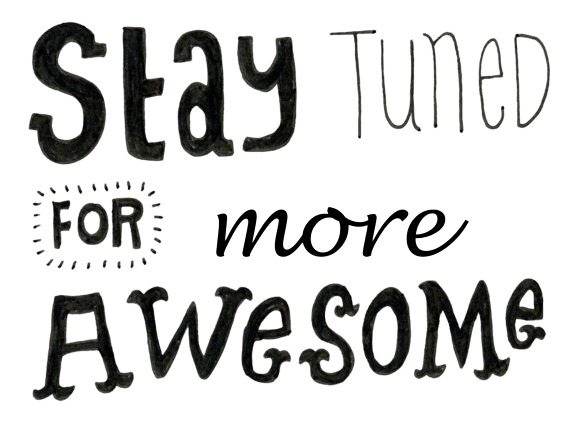 Stay TunED
FOR more
AWeSOMe